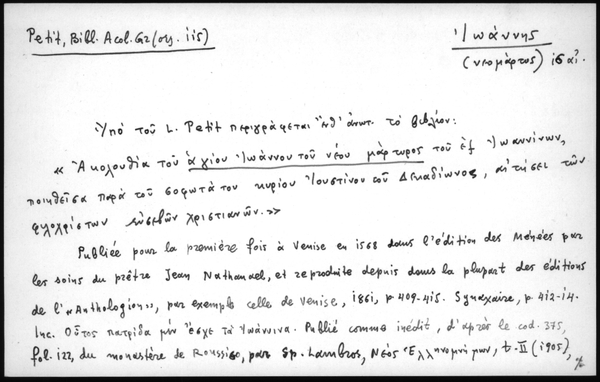 Petit, Bibl. Acol. Gr (σy. 115)
Ἰωάννης
(νεομάρτυς) 16 αἰ.
Ὑπὸ τοῦ L. Petit περιγράφεται ἐνθ' ἀνωτ. τὸ βιβλίον:
« Ἀκολουθία τοῦ ἁγίου Ἰωάννου τοῦ νέου μάρτυρος τοῦ ἐξ Ἰωαννίνων,
ποιηθεῖσα παρὰ τοῦ σοφωτάτου κυρίου Ἰουστίνου τοῦ Δεκαδύωνος, αἰτήσει τῶν
φιλοχρίστων εὐσεβῶν χριστιανῶν.»
Publiée pour la première fois à Venise en 1568 dans l'édition des Ménées par
les soins du prêtre Jean Nathanael, et reproduite depuis dans la plupart des éditions
de l'«Anthologion», par exemple celle de Venise, 1861, p 409-415. Synaxaire, p 412-14.
Inc. Οὗτος πατρίδα μὲν ἔσχε τὰ Ἰωάννινα. Publié comme inédit, d'après le cod. 375,
fol. 122, du monastère de Roussico, par Sp. Lambros, Νέος Ἑλληνομνήμων, t. II (1905),